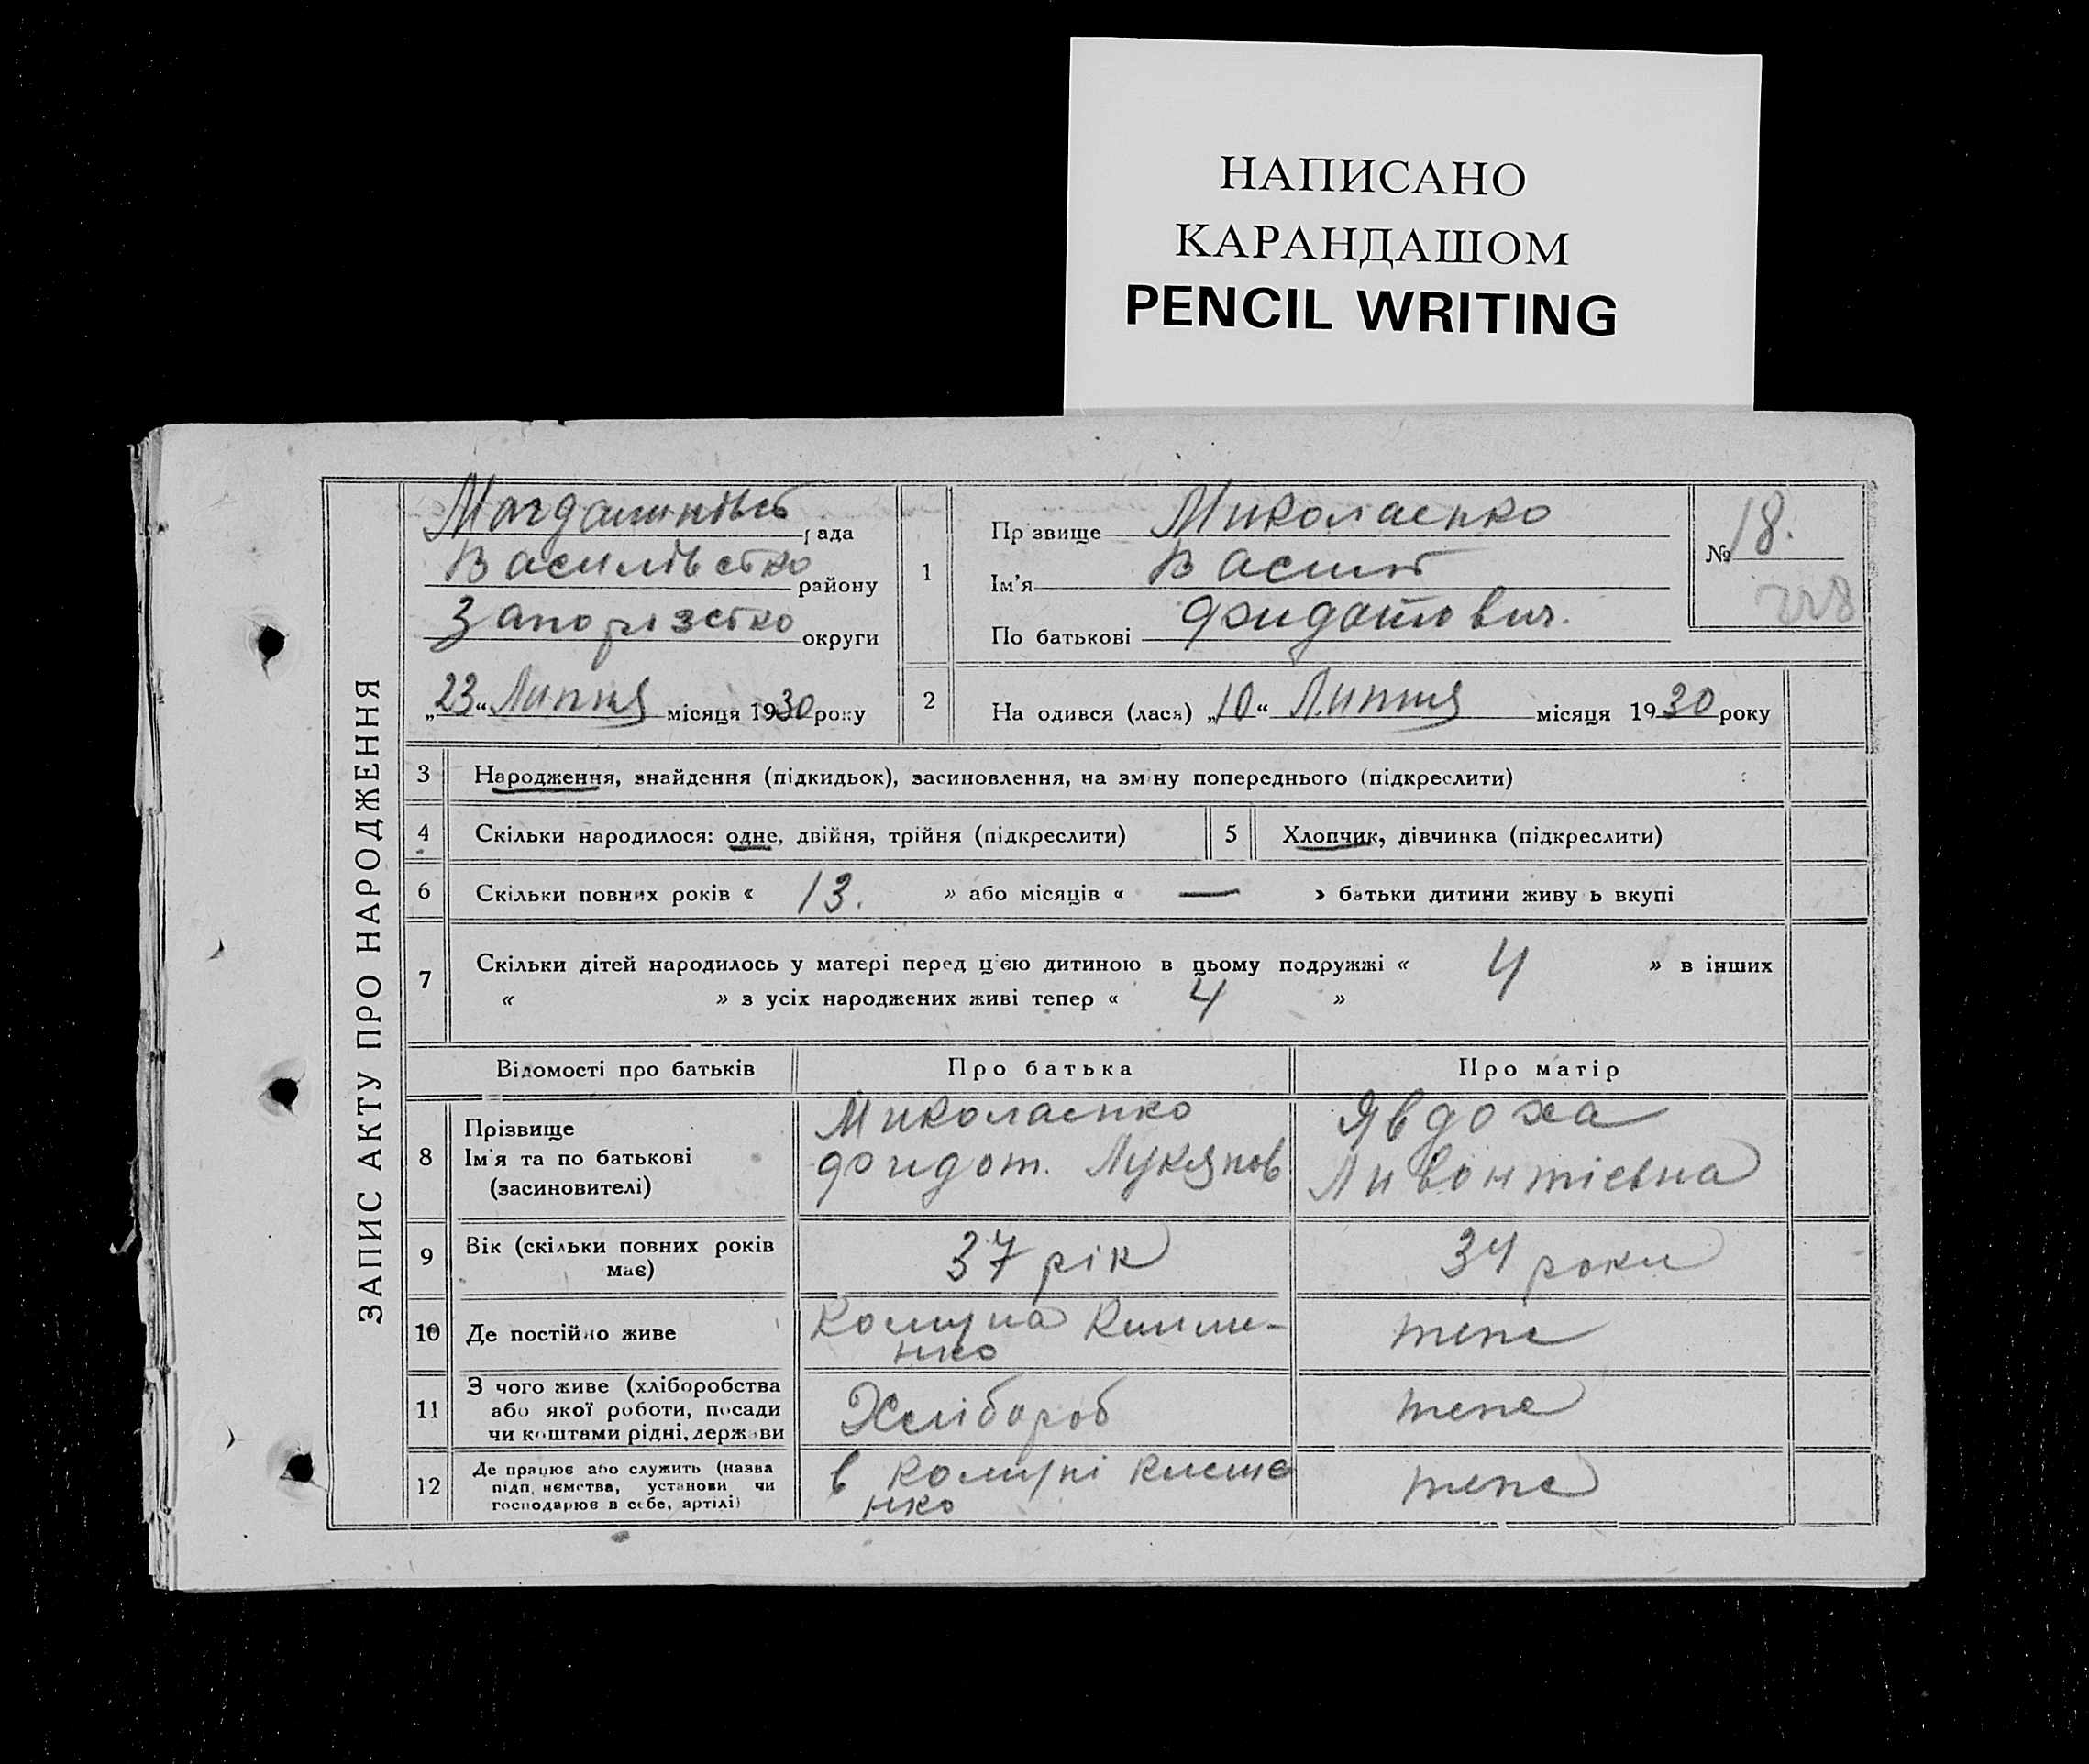 НАПИСАНО
КАРАНДАШОМ
PENCIL WRITING
ЗАПИС АКТУ ПРО НАРОДЖЕННЯ
рада
Василівсько району
Запорізско округи
„23“ Липня місяця 1930 року
1
Прізвище Миколаенко
Ім'я Василь
По батькові Фидотович.
№ 18.
228
2
На одився (лася) „10“ Липня місяця 1930 року
3 Народження, знайдення (підкидьок), засиновлення, на зміну попереднього (підкреслити)
4 Скільки народилося: одне, двійня, трійня (підкреслити)
5 Хлопчик, дівчинка (підкреслити)
6 Скільки повних років « 13. » або місяців « — » батьки дитини живу ь вкупі
7 Скільки дітей народилось у матері перед цією дитиною в цьому подружжі « 4 » в інших
« » з усіх народжених живі тепер « 4 »
Відомості про батьків Про батька Про матір
8 Прізвище
Ім'я та по батькові
(засиновителі)
Миколаенко
Фидот. Лукянов
Явдоха
Ливонтієвна
9 Вік (скільки повних років
має)
37 рік
34 роки
10 Де постійно живе
Комуна
нко
тепе
11 З чого живе (хліборобства
або якої роботи, посади
чи коштами рідні, держави
Хлібороб
тепе
12 Де працює або служить (назва
підп. немства, установи чи
господарює в себе, артілі)
в комуні
нко
тепе